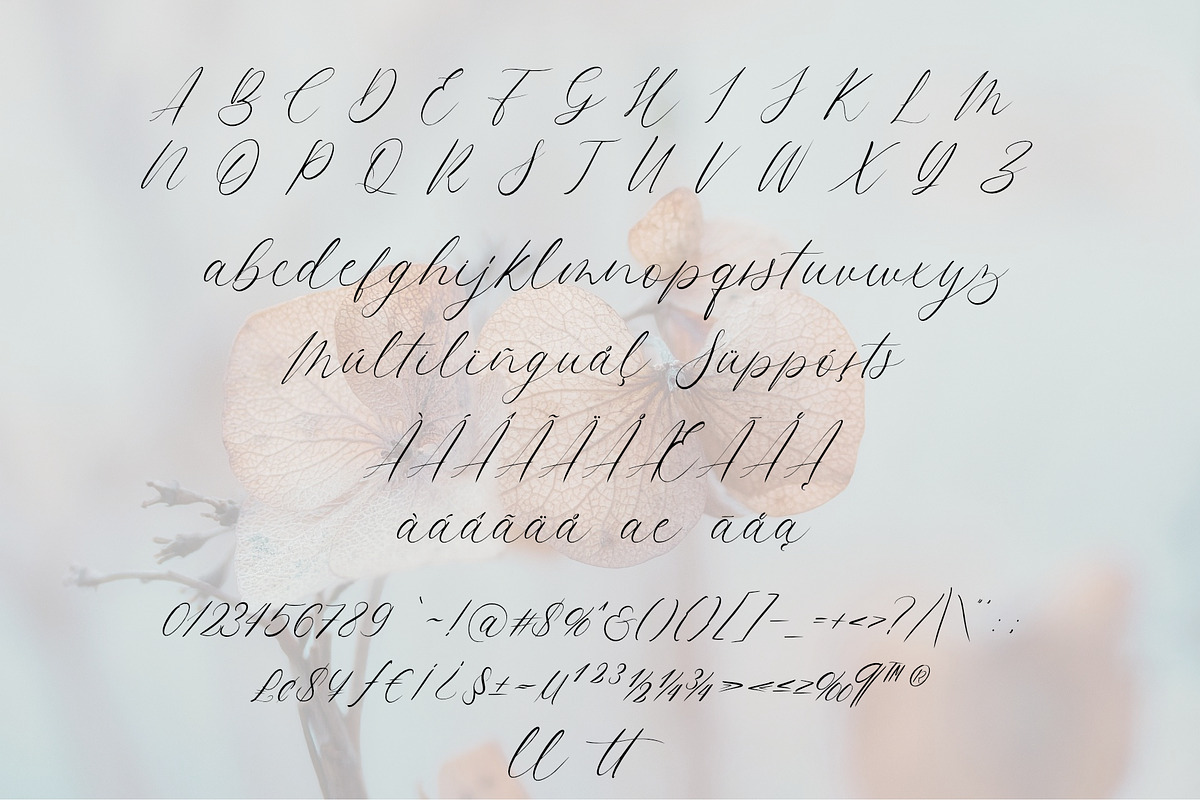 A B C D E F G H I J K L M
N O P Q R S T U V W X Y Z
abcdefghijklmnopqrstuvwxyz
Múltilïñguåļ Süppóşts
ÀÁÂÃÄÅÆĀĂĄ
àáâãäå ae āăą
0123456789 `~!@#$%^&()(){}[]-_=+<>?/|\":;
£¢$¥ƒ€¡¿§±~µ¹²³½¼¾»«≤≥‰¶™®
ll tt